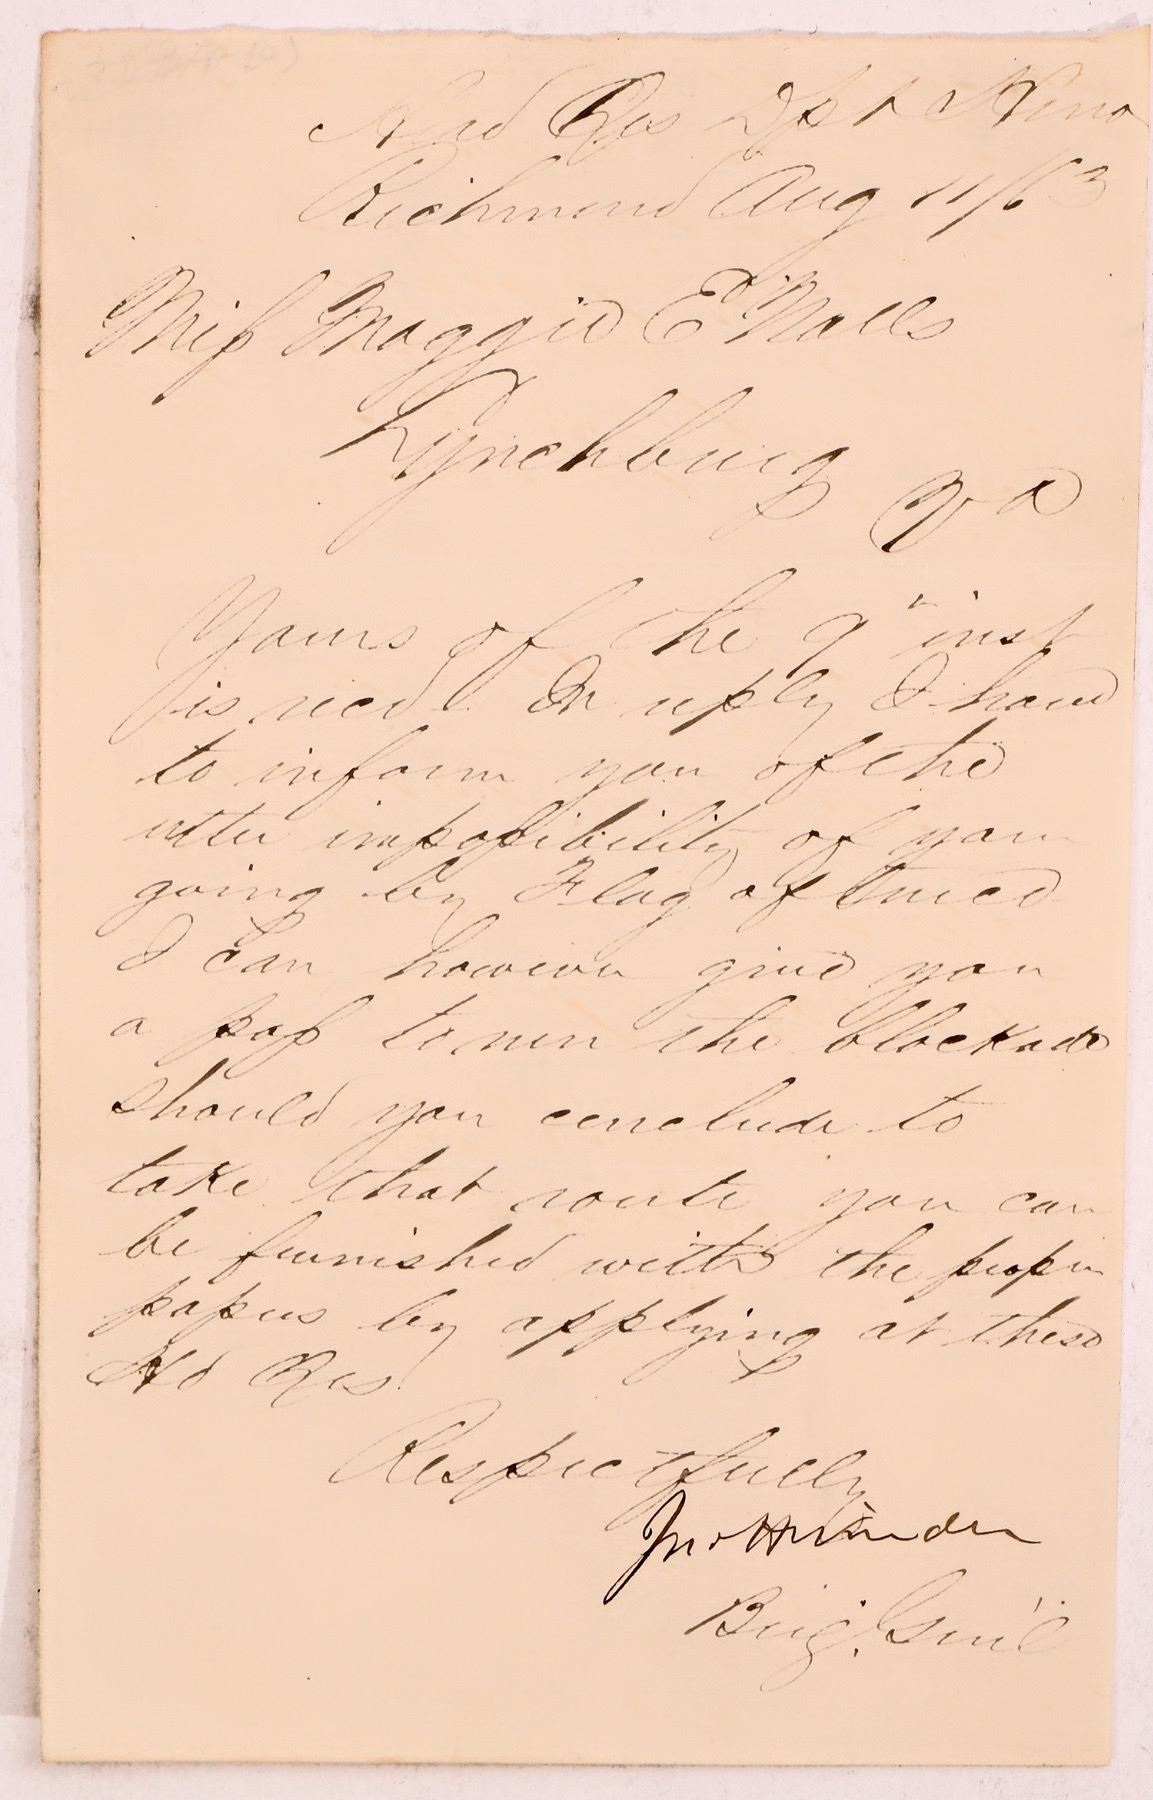 Head Qrs Dpt Henrico
Richmond Aug 11/63
Miss Maggie E Nalls
Lynchburg
Va
Yours of the 9" inst
is recd. In reply I have
to inform you of the
utter impossibility of your
going by Flag of Truce
I can however give you
a pass to run the blockade
should you conclude to
take that route you can
be furnished with the proper
papers by applying at these
Hd Qrs.
Respectfully
Jno H Winder
Brig. Gen'l